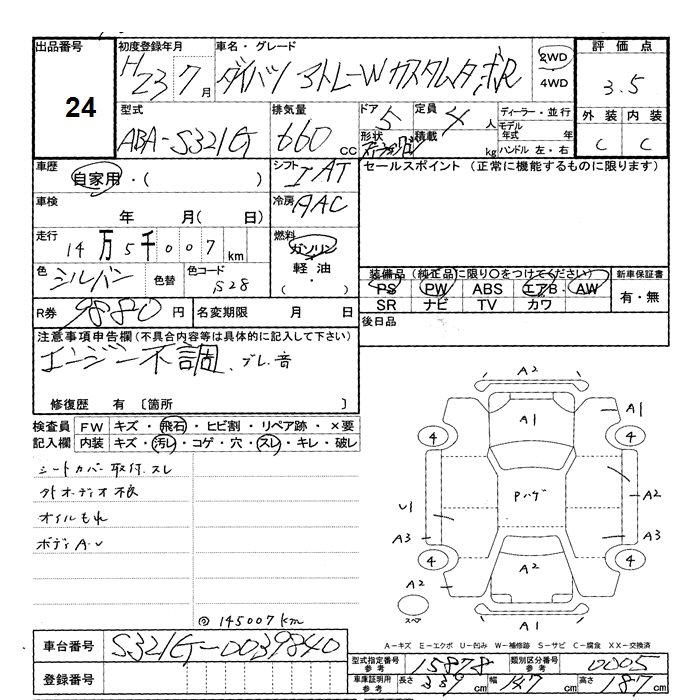 出品番号
24
初度登録年月
H23 7月
車名・グレード
ダイハツ アトレーW カスタムターボR
2WD
4WD
評価点
3.5
外装 内装
C C
型式
ABA-S321G
排気量
660 cc
ドア 5
形状
定員 4 人
積載 kg
ディーラー・並行
モデル年式 年
ハンドル 左・右
車歴
自家用・( )
シフト IAT
セールスポイント (正常に機能するものに限ります)
車検
年 月( 日)
冷房 AAC
走行
14万5千007km
燃料
ガソリン
軽油
( ・ )
色
シルバー
色替
色コード
S28
装備品 (純正品に限り○をつけてください)
PS PW ABS エアB・ AW
SR ナビ TV カワ
新車保証書
有・無
R券 9880円
名変期限 月 日
後日品
注意事項申告欄(不具合内容等は具体的に記入して下さい)
エンジン不調、ブレ、音
修復歴 有 〔箇所 〕
検査員 FW キズ・飛石・ヒビ割・リペア跡・×要
記入欄 内装 キズ・汚レ・コゲ・穴・スレ・キレ・破レ
シートカバー取付、スレ
外オーディオ不良
オイルもれ
ボディA・U
◎145007km
A2
A1
A1
4
4
Pハゲ
A2
U1
A3
A3
4
4
A2
A2
スペア
A1
A-キズ E-エクボ U-凹み W-補修跡 S-サビ C-腐食 XX-交換済
車台番号 S321G-0039840
登録番号
型式指定番号 参考 15878
類別区分番号 参考 0005
車庫証明用 参考 長さ 339cm 幅 147cm 高さ 187cm